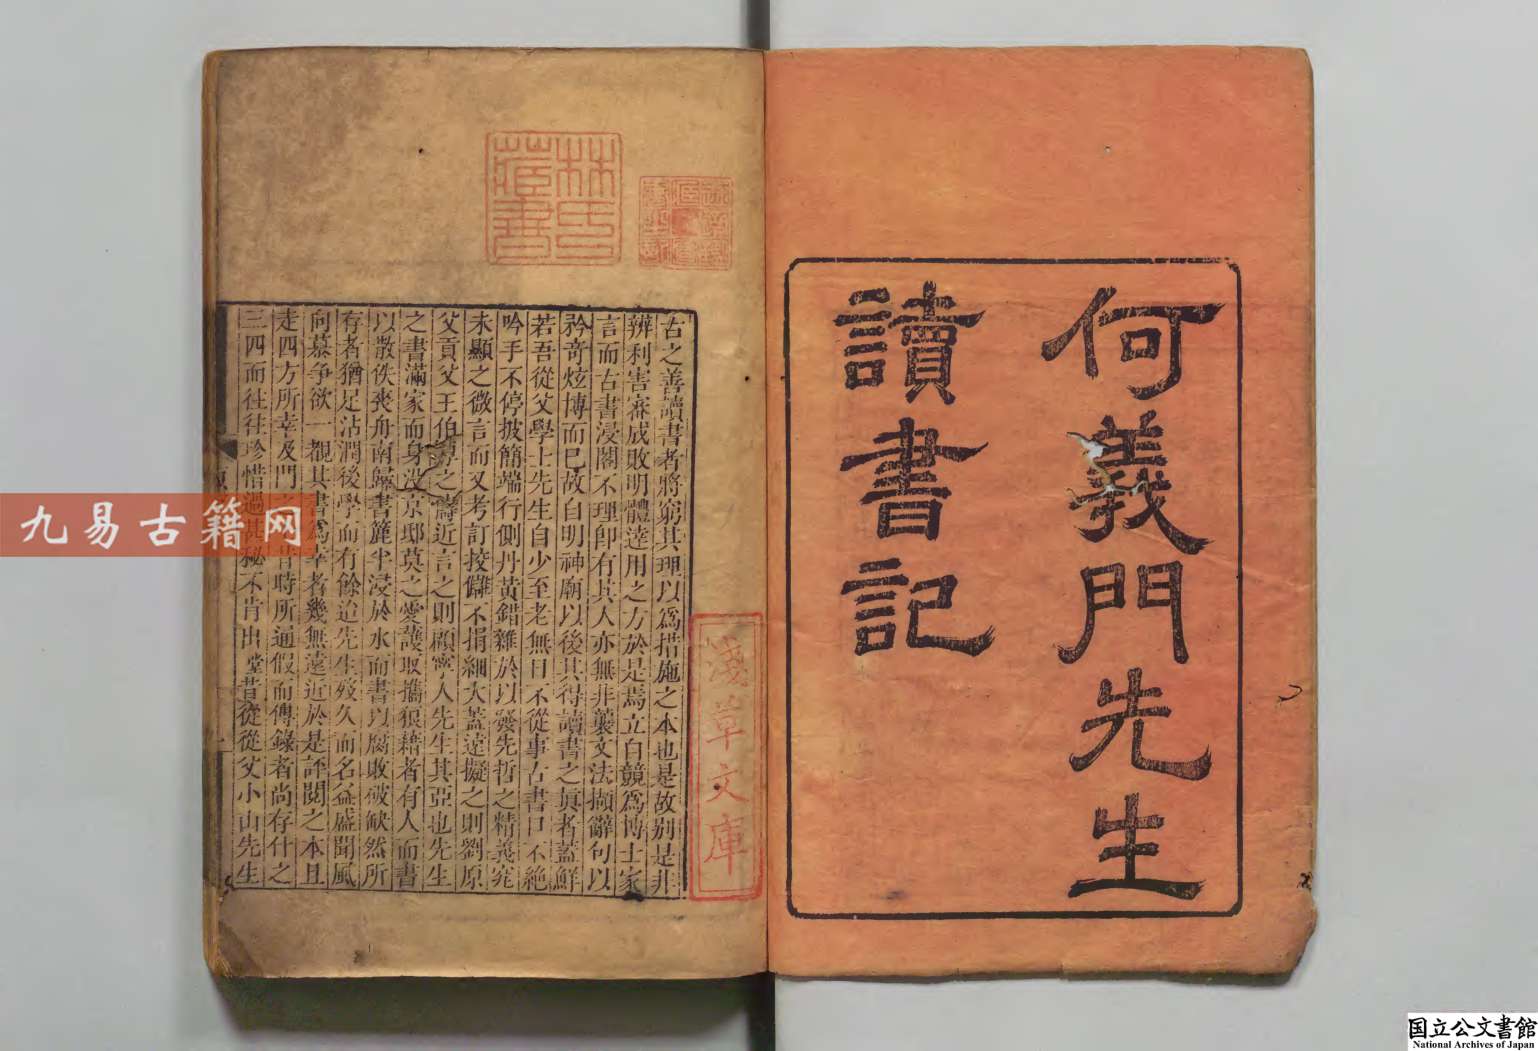 何義門先生
讀書記
林氏
藏書
淺草文庫
古之善讀書者將窮其理以爲措施之本也是故別是非
辨利害審成敗明體達用之方於是焉立自競爲博士家
言而古書浸閣不理即有其人亦無非襞文法擷辭句以
矜奇炫博而已故自明神廟以後其得讀書之眞者蓋鮮
若吾從父學士先生自少至老無日不從事古書口不絶
吟手不停披簡端行側丹黃錯雜於以發先哲之精義究
未顯之微言而又考訂挍讎不捐細大蓋遠擬之則劉原
父貢父王伯厚之儔近言之則顧寧人先生其亞也先生
之書滿家而身没京邸莫之愛護取攜狼藉者有人而書
以散佚喪舟南歸書簏半浸於水而書以腐敗破缺然所
存者猶足沾溉後學而有餘迨先生殁久而名益盛聞風
向慕爭欲一觀其書爲幸者幾無遠近於是評閱之本且
走四方所幸及門 昔時所通假而傳錄者尚存什之
三四而往往珍惜過甚秘不肯出堂昔從從父小山先生
九易古籍网
国立公文書館
National Archives of Japan